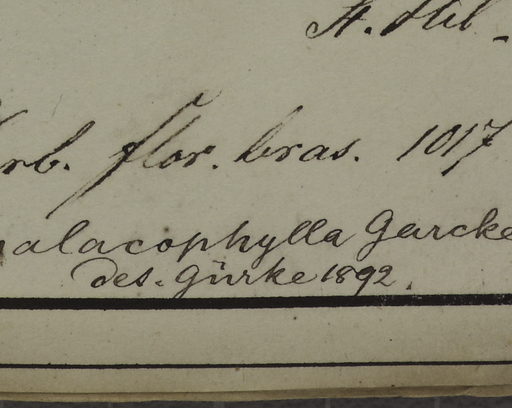 St. Hil.
Herb. flor. bras. 1017
malacophylla Garcke
des. Gürke 1892.